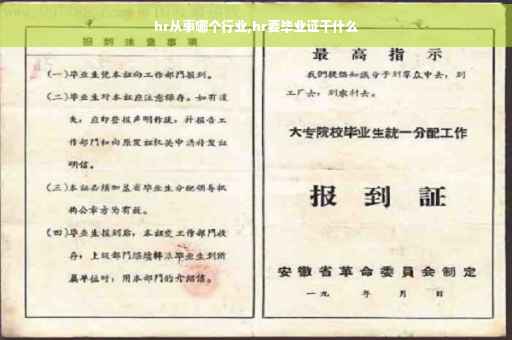 hr从事哪个行业,hr要毕业证干什么
报到注意事项
(一)毕业生凭本证向工作部门报到。
(二)毕业生对本证应注意保存。如有遗
失,应即登报声明作废,并报告工
作部门和向原发证机关申请补发证
明信。
(三)本证必须加盖省毕业生分配领导机
构公章方为有效。
(四)毕业生报到后,本证交工作部门收
存;上级部门继续转派毕业生到所
属单位时,用本部门的介绍信。
最高指示
我们提倡知识分子到群众中去,到
工厂去,到农村去。
大专院校毕业生统一分配工作
报到证
安徽省革命委员会制定
一九 年 月 日